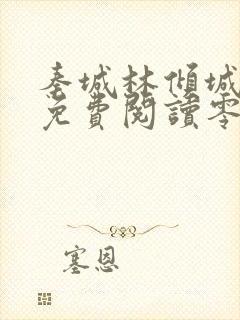 秦城林傾城
免費閱讀零
塞恩